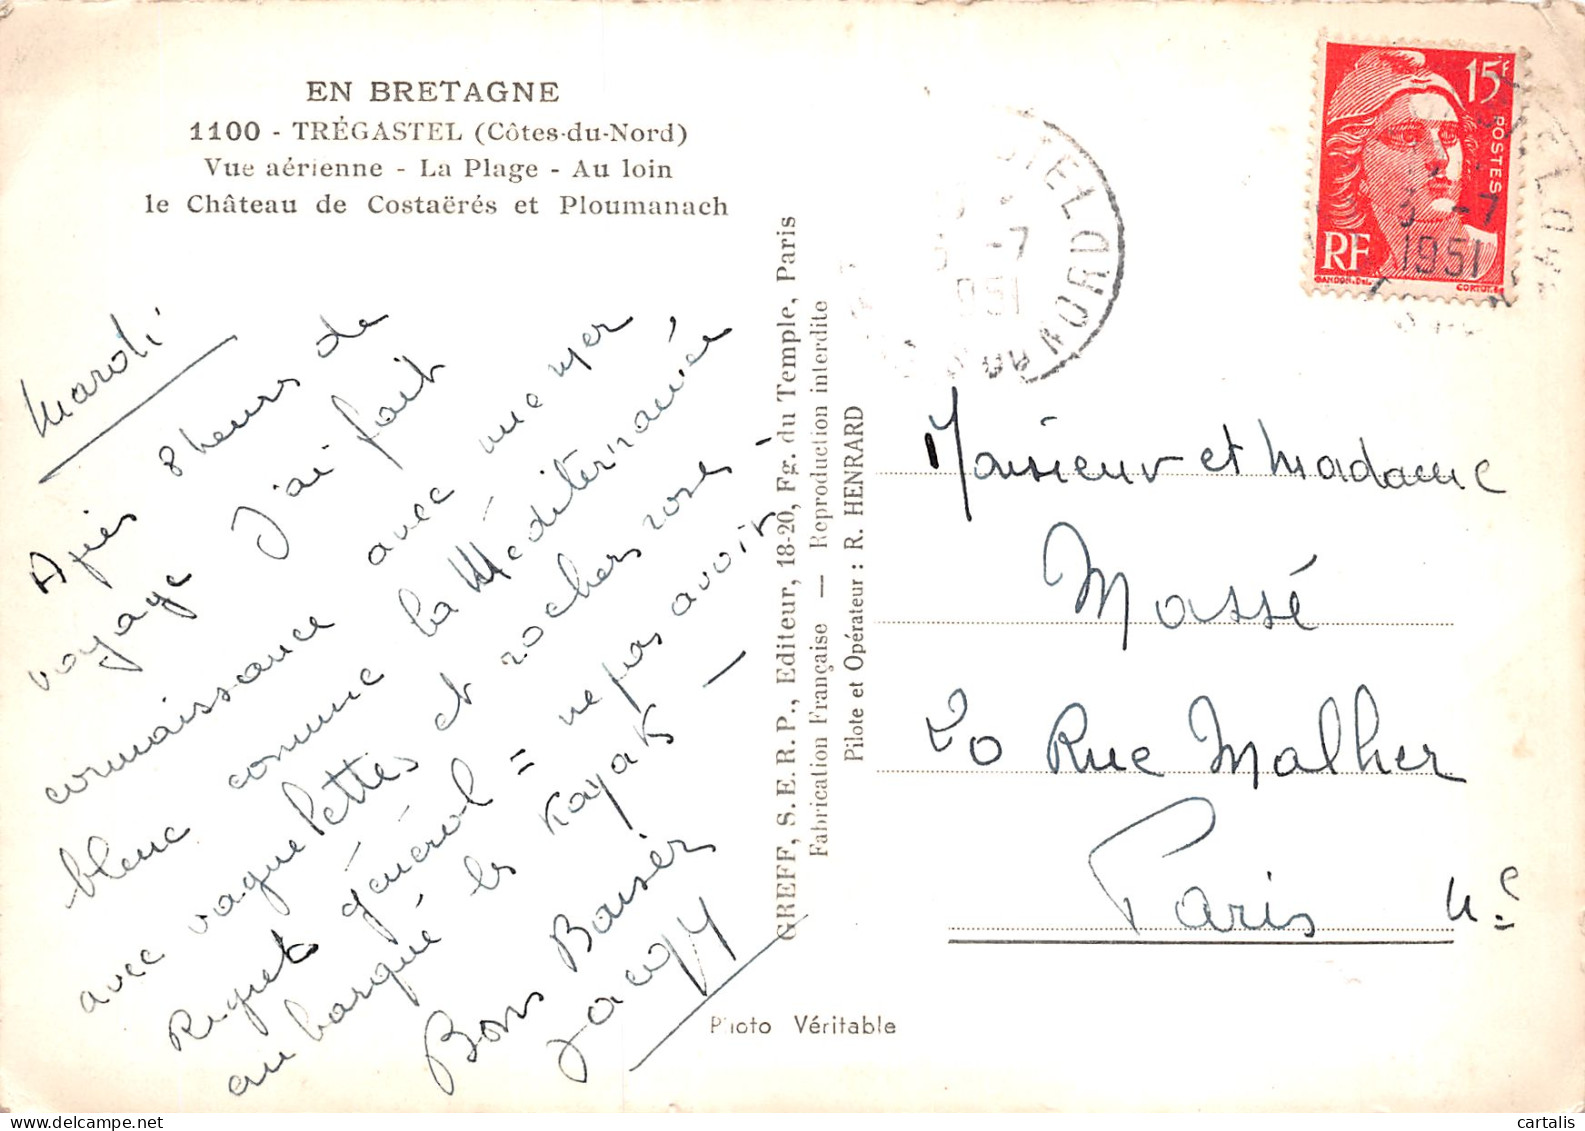 EN BRETAGNE
1100 - TRÉGASTEL (Côtes-du-Nord)
Vue aérienne - La Plage - Au loin
le Château de Costaërés et Ploumanach
Mardi
Apres 8 heures de
voyage j'ai fait
connaissance avec une mer
bleue comme la Méditerranée,
avec vaguelettes et rochers roses -
Regret général = ne pas avoir
embarqué les Kayaks -
Bons Baisers
GREFF, S.E.R.P., Editeur, 18-20, Fg. du Temple, Paris
Fabrication Française — Reproduction interdite
Pilote et Opérateur : R. HENRARD
Photo Véritable
15F
POSTES
RF
GANDON.DEL.
-7
1951
-7
951
NORD
Monsieur et Madame
Massé
20 Rue Malher
Paris 4e
cartalis